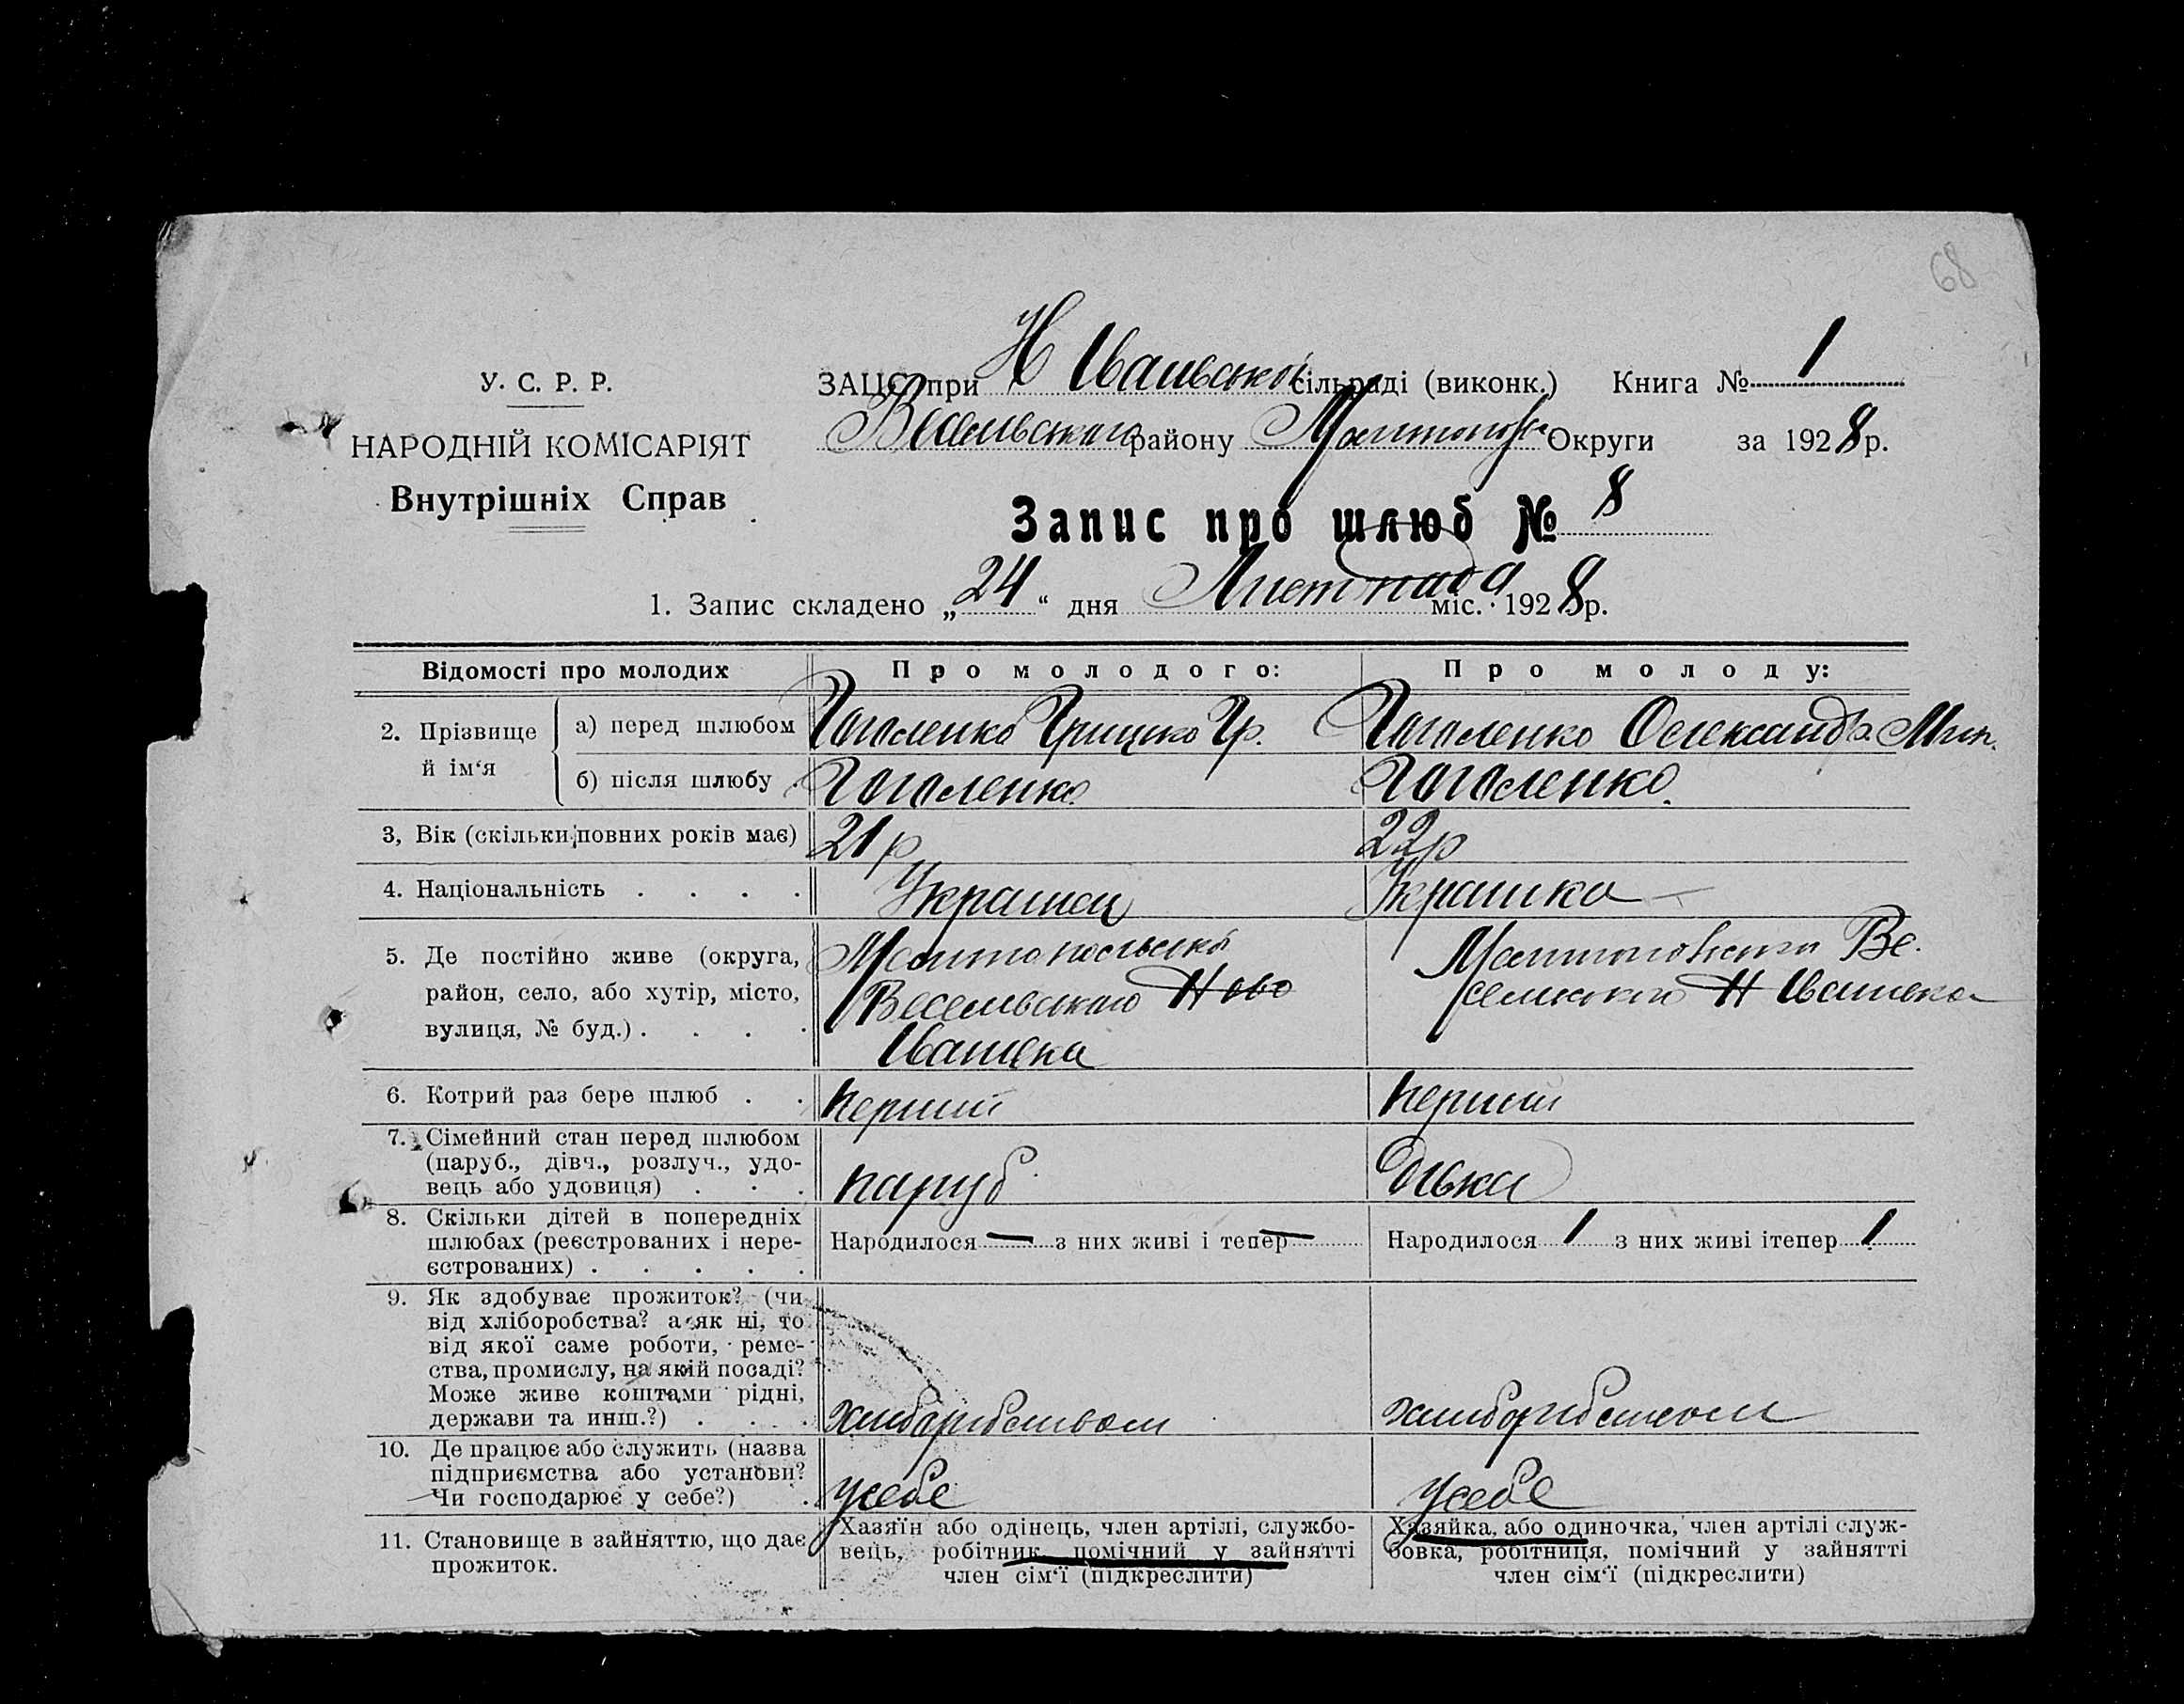 68
У. С. Р. Р.
НАРОДНІЙ КОМІСАРІЯТ
Внутрішніх Справ
ЗАЦС при Н Іванівській сільраді (виконк.) Книга № 1
Веселівського району Мелітопольс Округи за 1928 р.
Запис про шлюб № 8
1. Запис складено „24“ дня Листопада міс. 1928 р.
Відомості про молодих
Про молодого:
Про молоду:
2. Прізвище й ім‘я
а) перед шлюбом
Гоголенко Грицко Гр.
Гоголенко Олександ
б) після шлюбу
Гоголенко
Гоголенко
3, Вік (скільки повних років має)
21 р
22 р
4. Національність . . . .
Украінец
Украінка
5. Де постійно живе (округа, район, село, або хутір, місто, вулиця, № буд.) . . . .
Мелітопольської
Веселівського Ново
Іванівка
Ве
селівского Н Іванівка
6. Котрий раз бере шлюб . .
перший
перший
7. Сімейний стан перед шлюбом
(паруб., дівч., розлуч., удо-
вець або удовиця) . . .
паруб
дівка
8. Скільки дітей в попередніх
шлюбах (реєстрованих і нере-
єстрованих) . . . . .
Народилося — з них живі і тепер —
Народилося 1 з них живі ітепер 1
9. Як здобуває прожиток? (чи
від хліборобства? а як ні, то
від якої саме роботи, реме-
ства, промислу, на якій посаді?
Може живе коштами рідні,
держави та инш.?) . . . .
хліборібством
хліборібством
10. Де працює або служить (назва
підприємства або установи?
Чи господарює у себе?) .
усебе
усебе
11. Становище в зайняттю, що дає
прожиток.
Хазяїн або одінець, член артілі, службо-
вець, робітник, помічний у зайнятті
член сім‘ї (підкреслити)
Хазяйка, або одиночка, член артілі служ-
бовка, робітниця, помічний у зайнятті
член сім‘ї (підкреслити)